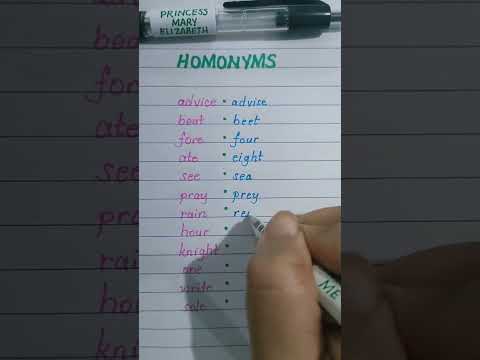 PRINCESS
MARY
ELIZABETH
HOMONYMS
advice • advise
beat • beet
fore • four
ate • eight
see • sea
pray • prey
rain • re
hour •
knight •
one •
write •
sole •
ME